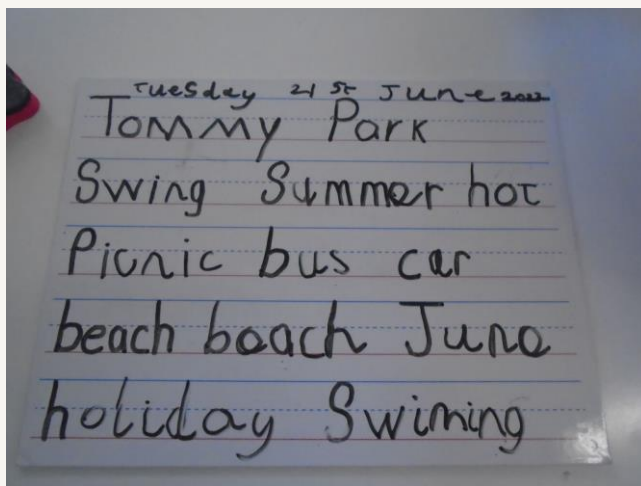 Tuesday 21st June 2022
Tommy Park
Swing Summer hot
Picnic bus car
beach beach June
holiday Swiming